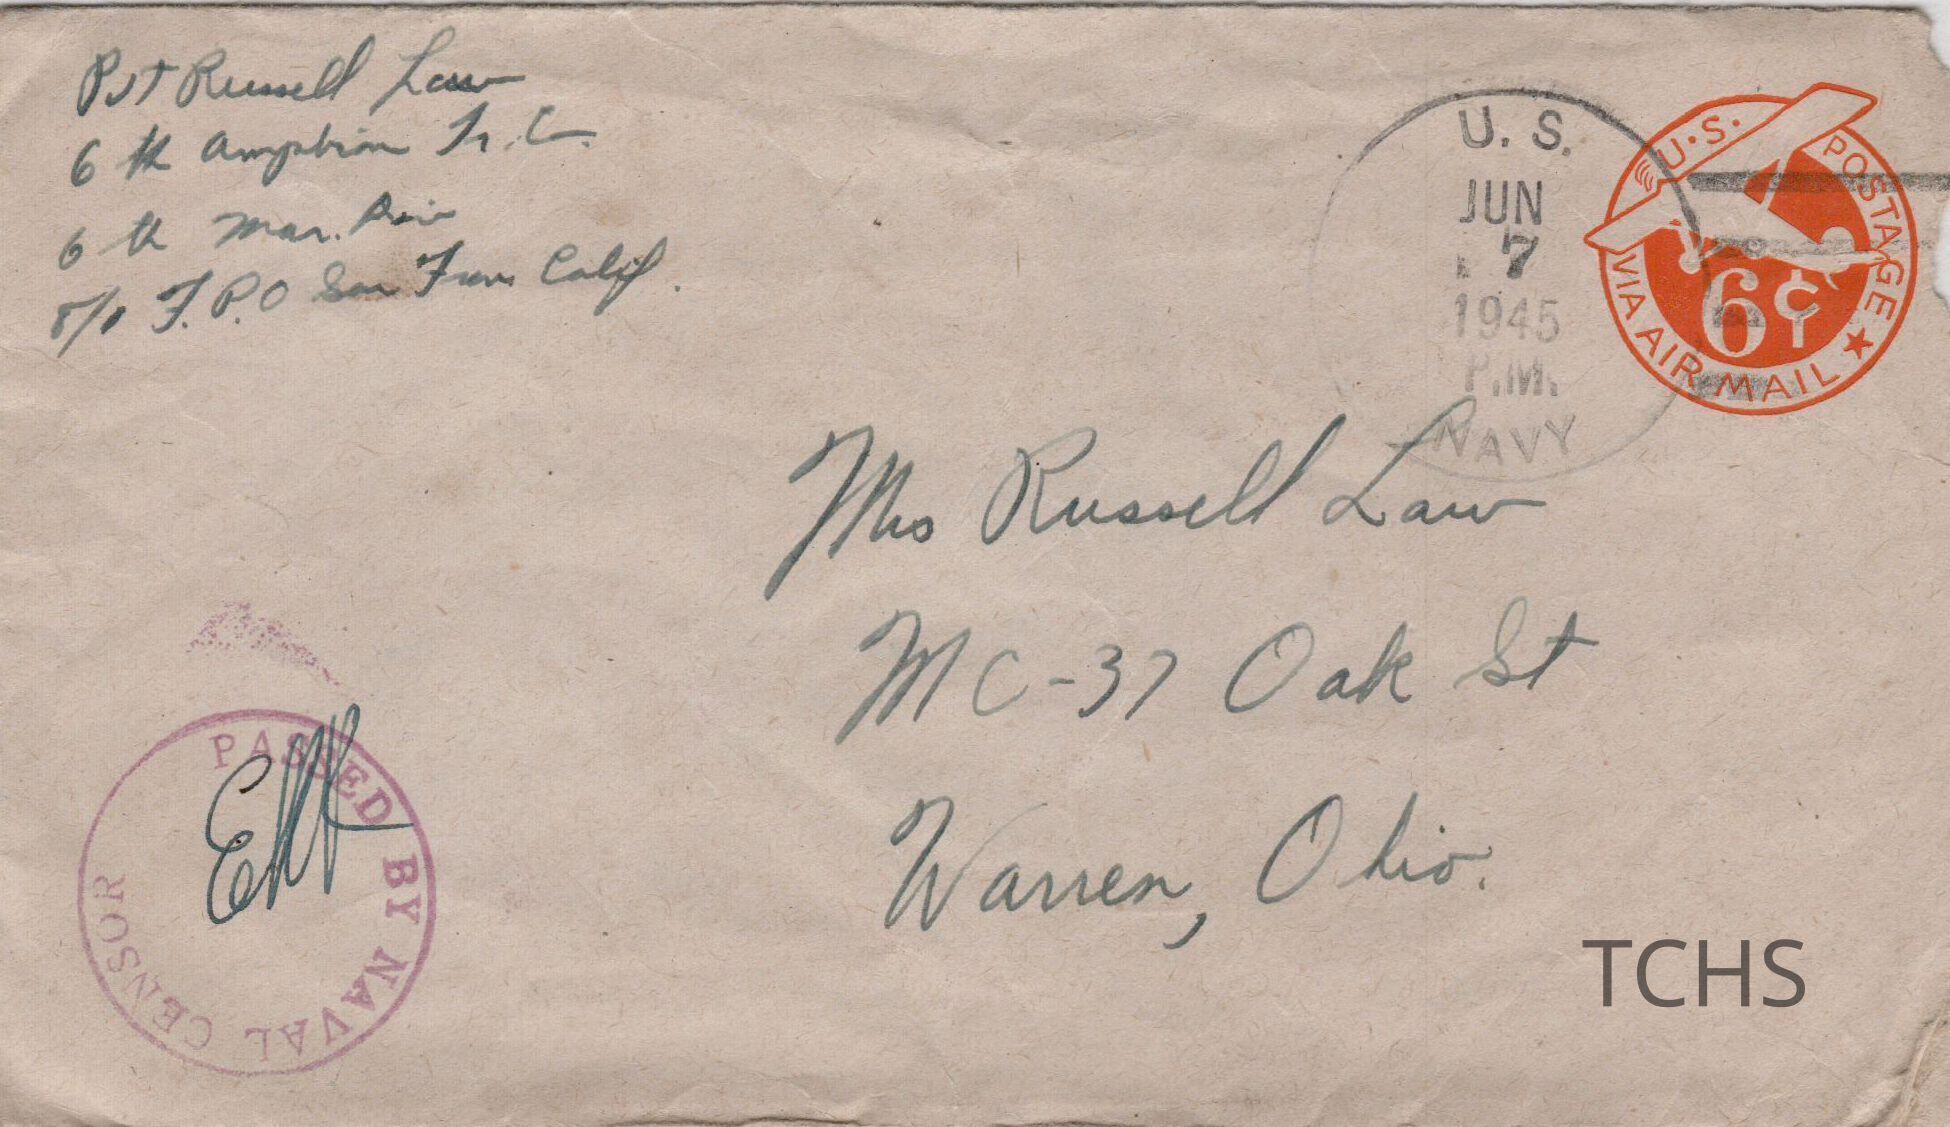 Pvt Russell Law
6 th Amphbion Tr. Co.
6 th Mar. Div
c/o F.P.O San Fran Calif.
U. S.
JUN
7
1945
P.M.
NAVY
U.S. POSTAGE
6¢
VIA AIR MAIL
Mrs Russell Law
MC-37 Oak St
Warren, Ohio.
PASSED BY NAVAL CENSOR
TCHS